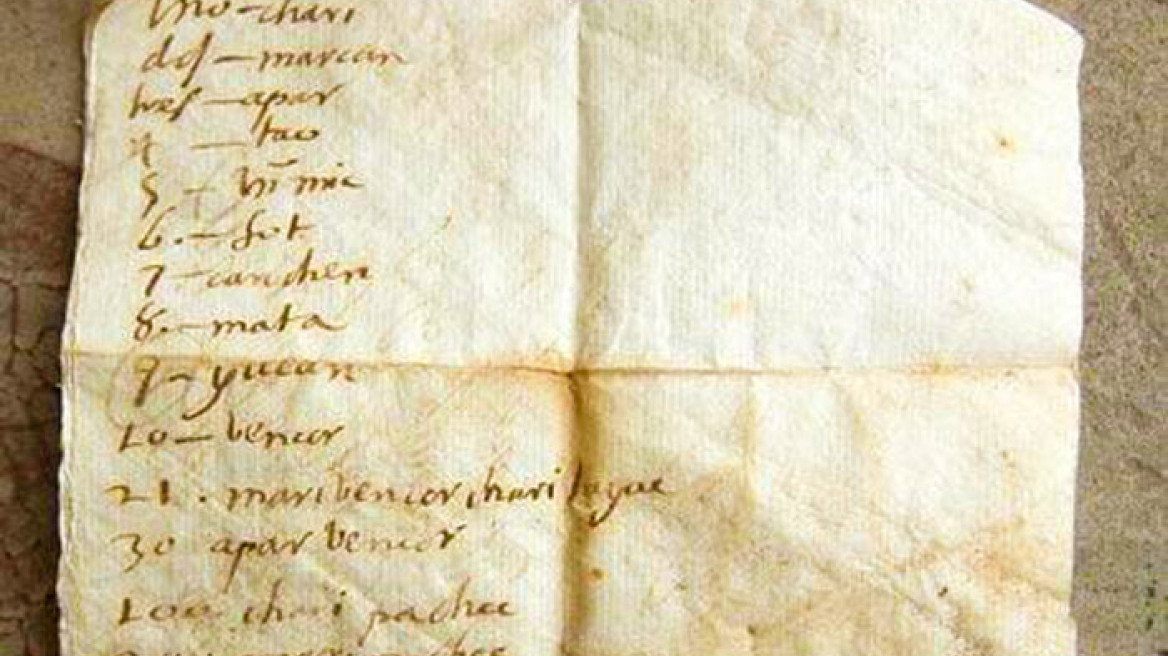 uno - chari
dos - marian
tres - apar
4 - tau
5 - himic
6. - sut
7 - canchen
8. - mata
9 - yucan
10 - bencor
21. maribencor chari tayac
30 apar bencor
100 chari pachac